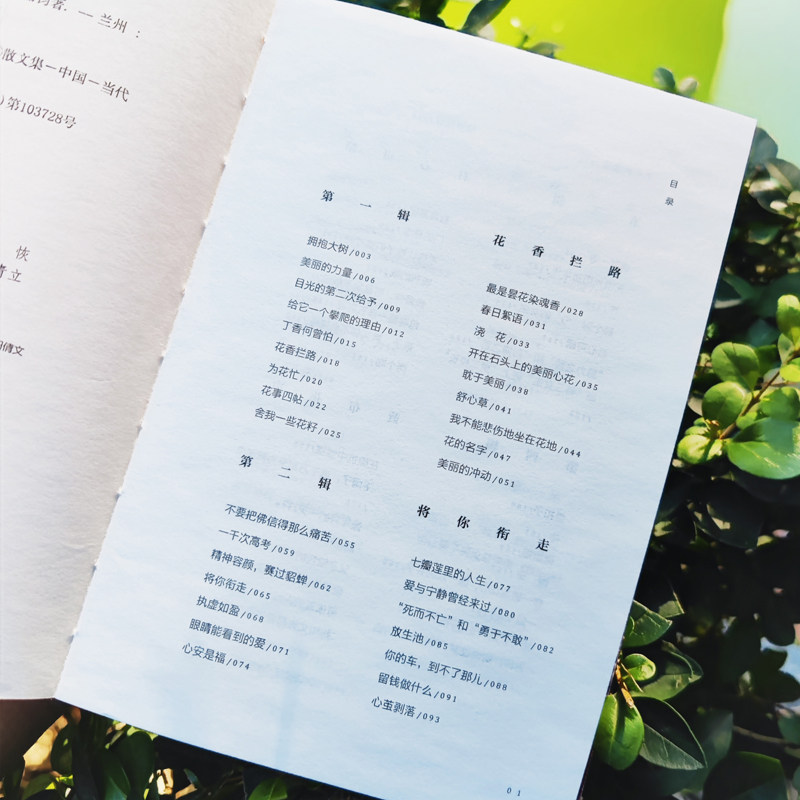 者. — 兰州 :
散文集－中国－当代
第103728号
恢
立
倩文
目录
第一辑
花香拦路
拥抱大树/003
美丽的力量/006
目光的第二次给予/009
给它一个攀爬的理由/012
丁香何曾怕/015
花香拦路/018
为花忙/020
花事四帖/022
舍我一些花籽/025
最是昙花染魂香/028
春日絮语/031
浇 花/033
开在石头上的美丽心花/035
耽于美丽/038
舒心草/041
我不能悲伤地坐在花地/044
花的名字/047
美丽的冲动/051
第二辑
将你衔走
不要把佛信得那么痛苦/055
一千次高考/059
精神容颜，赛过貂蝉/062
将你衔走/065
执虚如盈/068
眼睛能看到的爱/071
心安是福/074
七瓣莲里的人生/077
爱与宁静曾经来过/080
“死而不亡”和“勇于不敢”/082
放生池/085
你的车，到不了那儿/088
留钱做什么/091
心茧剥落/093
01